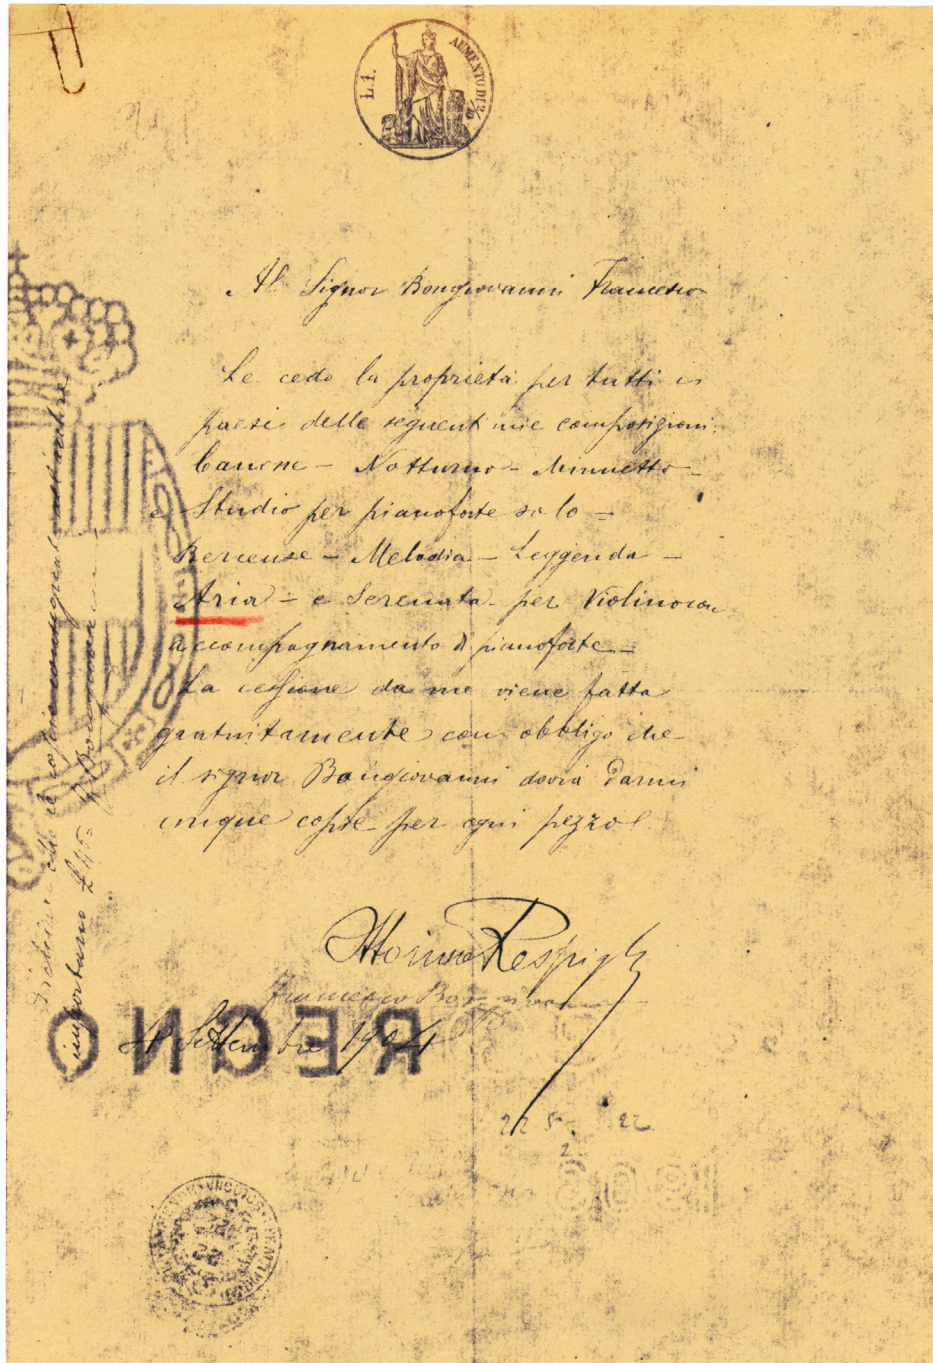 L. 1.
AUMENTO DI 2/10
Al Signor Bongiovanni Francesco
Le cedo la proprietà per tutti i
paesi delle seguenti mie composizioni:
Canone - Notturno - Minuetto -
e Studio per pianoforte solo =
Berceuse - Melodia - Leggenda -
Aria - e Serenata - per Violino con
accompagnamento di pianoforte -
La cessione da me viene fatta
gratuitamente con obbligo che
il signor Bongiovanni dovrà darmi
cinque copie per ogni pezzo.
Ottorino Respighi
Francesco Bongiovanni
Settembre 1904
REGNO
225. 22
2
importano £ 45 = Bongiovanni